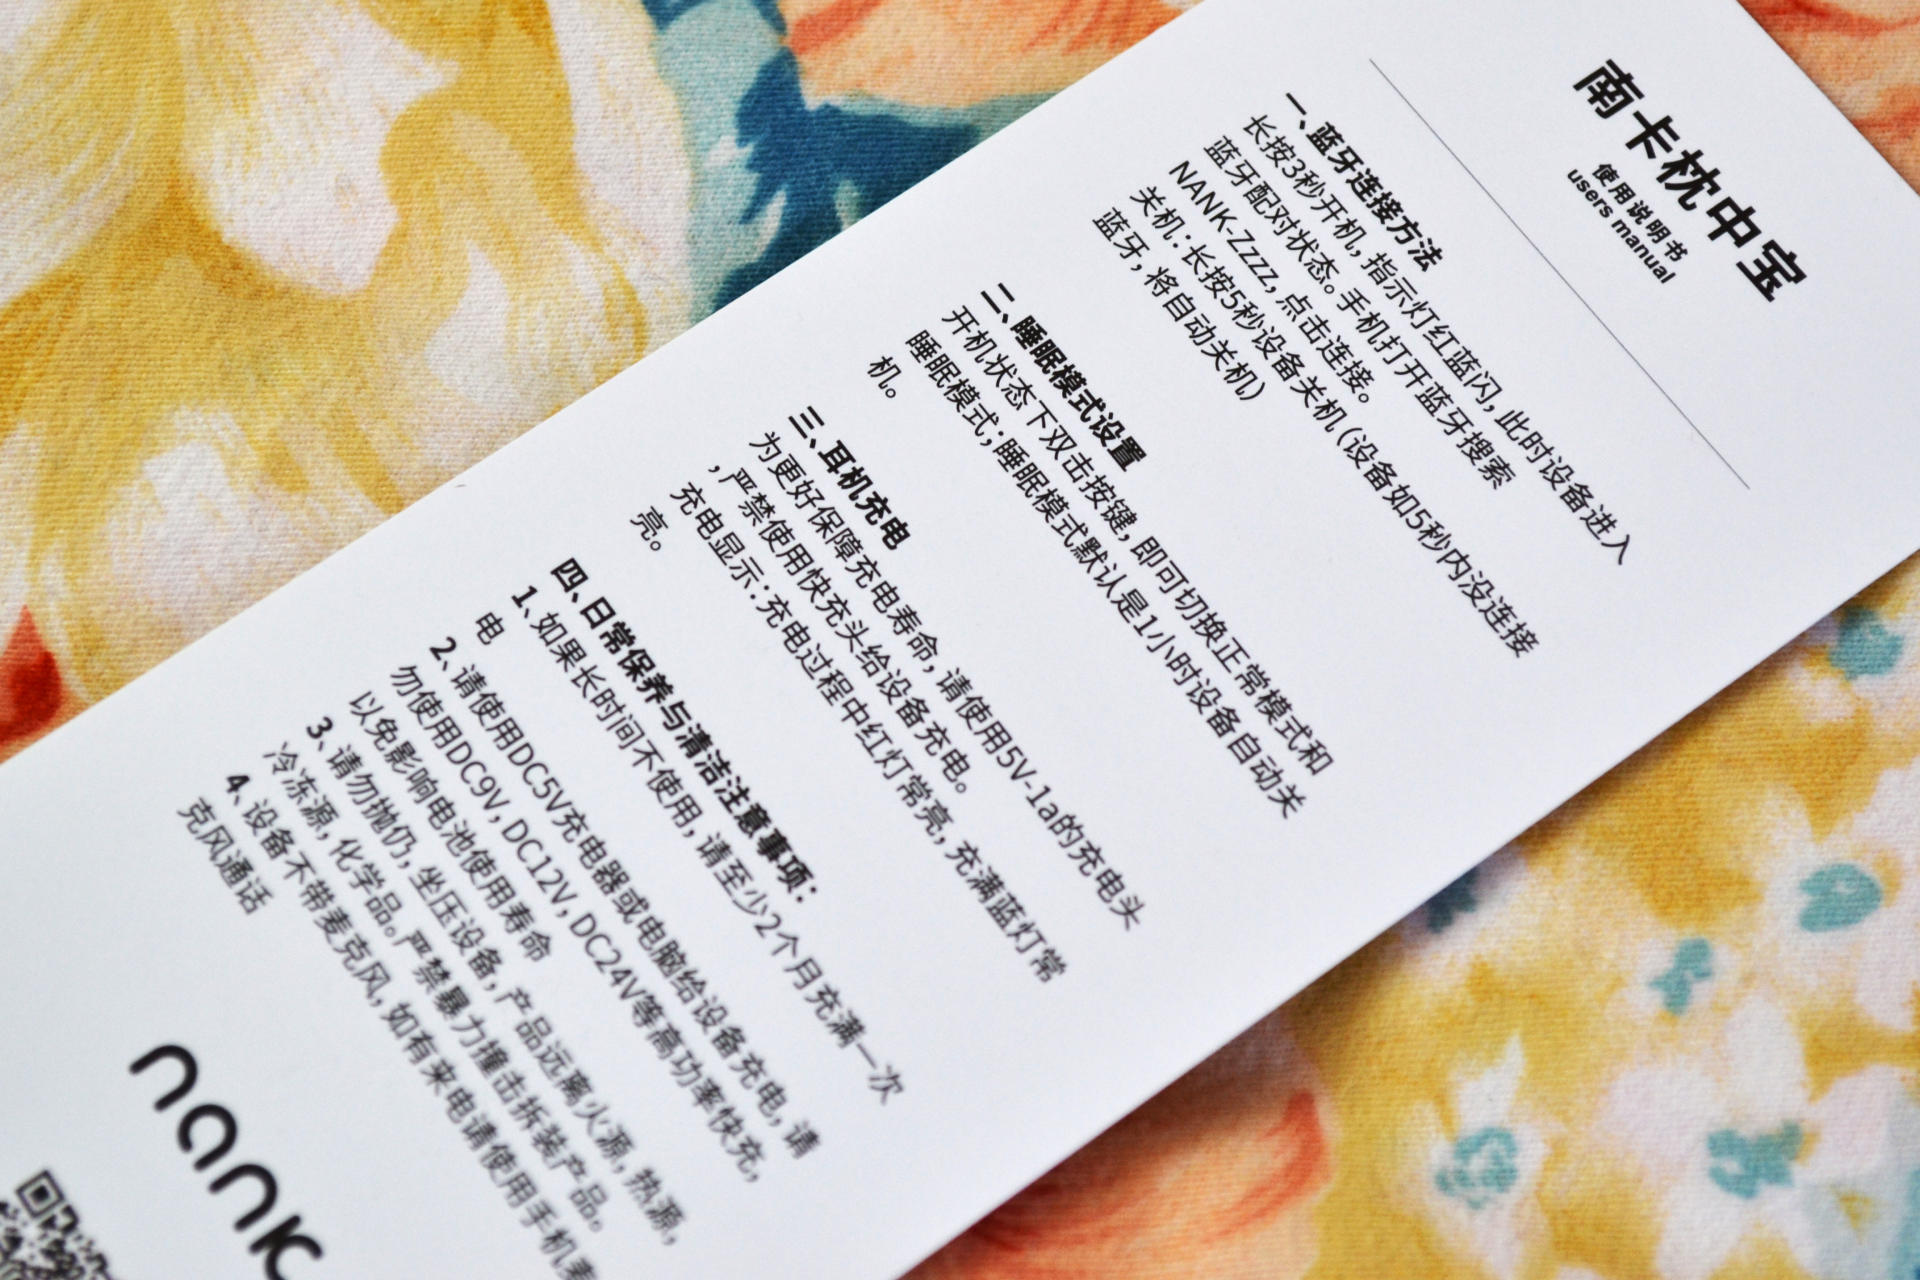 南卡枕中宝
使用说明书
users manual
一、蓝牙连接方法
长按3秒开机，指示灯红蓝闪，此时设备进入
蓝牙配对状态。手机打开蓝牙搜索
NANK-Zzzz，点击连接。
关机：长按5秒设备关机（设备如5秒内没连接
蓝牙，将自动关机）
二、睡眠模式设置
开机状态下双击按键，即可切换正常模式和
睡眠模式；睡眠模式默认是1小时设备自动关
机。
三、耳机充电
为更好保障充电寿命，请使用5V-1a的充电头
，严禁使用快充头给设备充电。
充电显示：充电过程中红灯常亮，充满蓝灯常
亮。
四、日常保养与清洁注意事项：
1、如果长时间不使用，请至少2个月充满一次
电
2、请使用DC5V充电器或电脑给设备充电，请
勿使用DC9V，DC12V，DC24V等高功率快充，
以免影响电池使用寿命
3、请勿抛仍，坐压设备，产品远离火源，热源，
冷冻源，化学品。严禁暴力撞击拆装产品。
4、设备不带麦克风，如有来电请使用手机麦
克风通话
nank